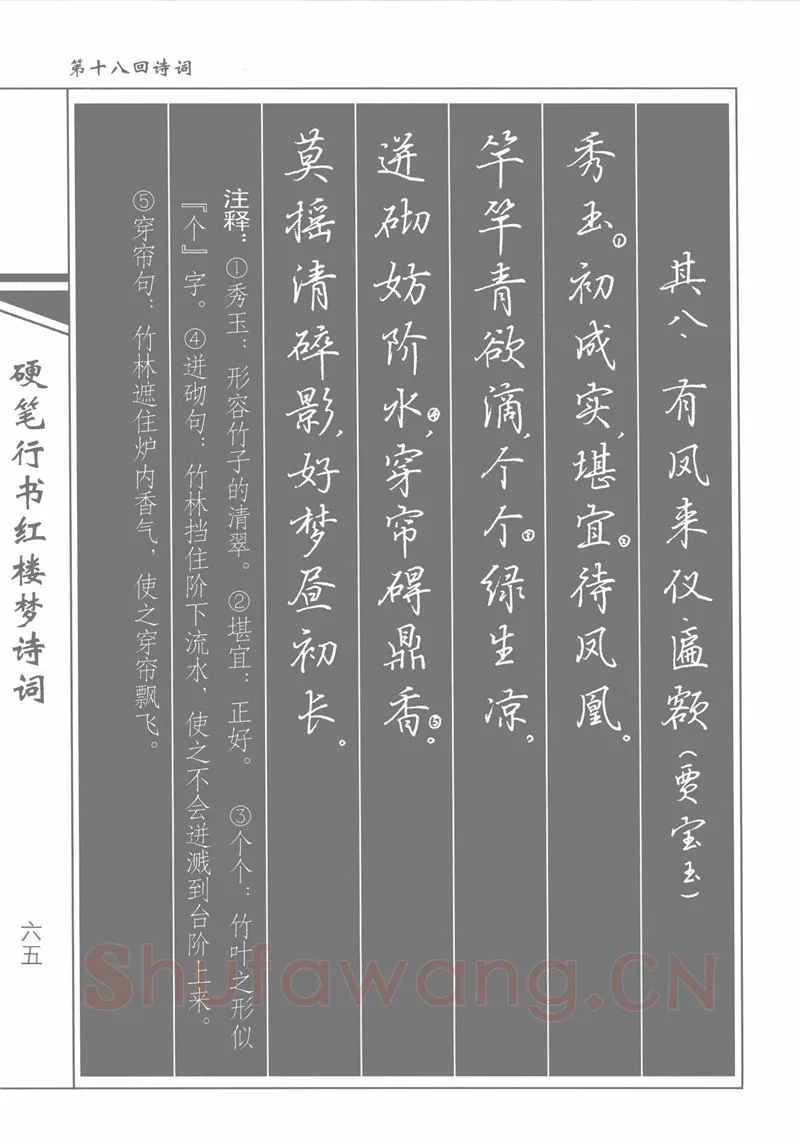 第十八回诗词
其八、有凤来仪匾额(贾宝玉)
秀玉①初成实,堪宜②待凤凰。
竿竿青欲滴,个个③绿生凉。
迸砌妨阶水④,穿帘碍鼎香⑤。
莫摇清碎影,好梦昼初长。
注释:①秀玉:形容竹子的清翠。②堪宜:正好。③个个:竹叶之形似
『个』字。④迸砌句:竹林挡住阶下流水,使之不会迸溅到台阶上来。
⑤穿帘句:竹林遮住炉内香气,使之穿帘飘飞。
硬笔行书红楼梦诗词
六五
Shufawang.CN